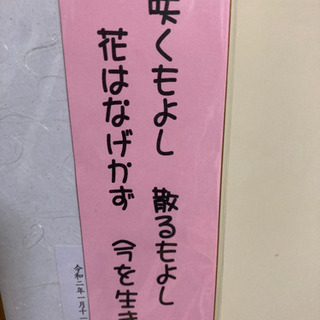 咲くもよし 散るもよし
花はなげかず 今を生き
令和二年一月十一